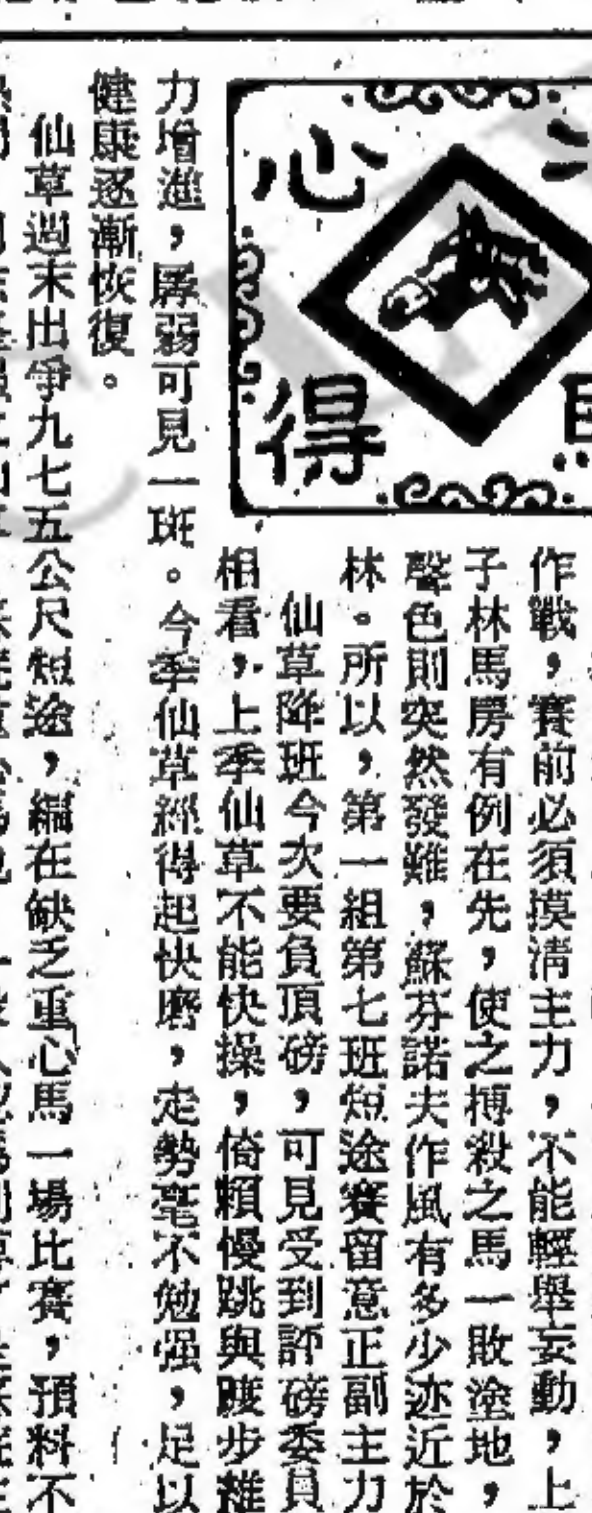 心得
作戰，賽前必須摸清主力，不能輕舉妄動，上
子林馬房有例在先，使之搏殺之馬一敗塗地，
聲色則突然發難，蘇芬諾夫作風有多少迹近於
林。所以，第一組第七班短途賽留意正副主力
仙草降班今次要負頂磅，可見受到評磅委員
相看，上季仙草不能快操，倚賴慢跳與踱步維
力增進，孱弱可見一斑。今季仙草經得起快磨，走勢毫不勉强，足以
健康逐漸恢復。
仙草週末出爭九七五公尺短途，編在缺乏重心馬一場比賽，預料不